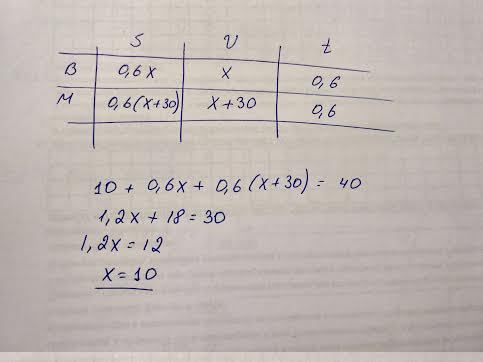 S U t
В 0,6x x 0,6
М 0,6(x+30) x+30 0,6
10 + 0,6x + 0,6(x+30) = 40
1,2x + 18 = 30
1,2x = 12
x = 10